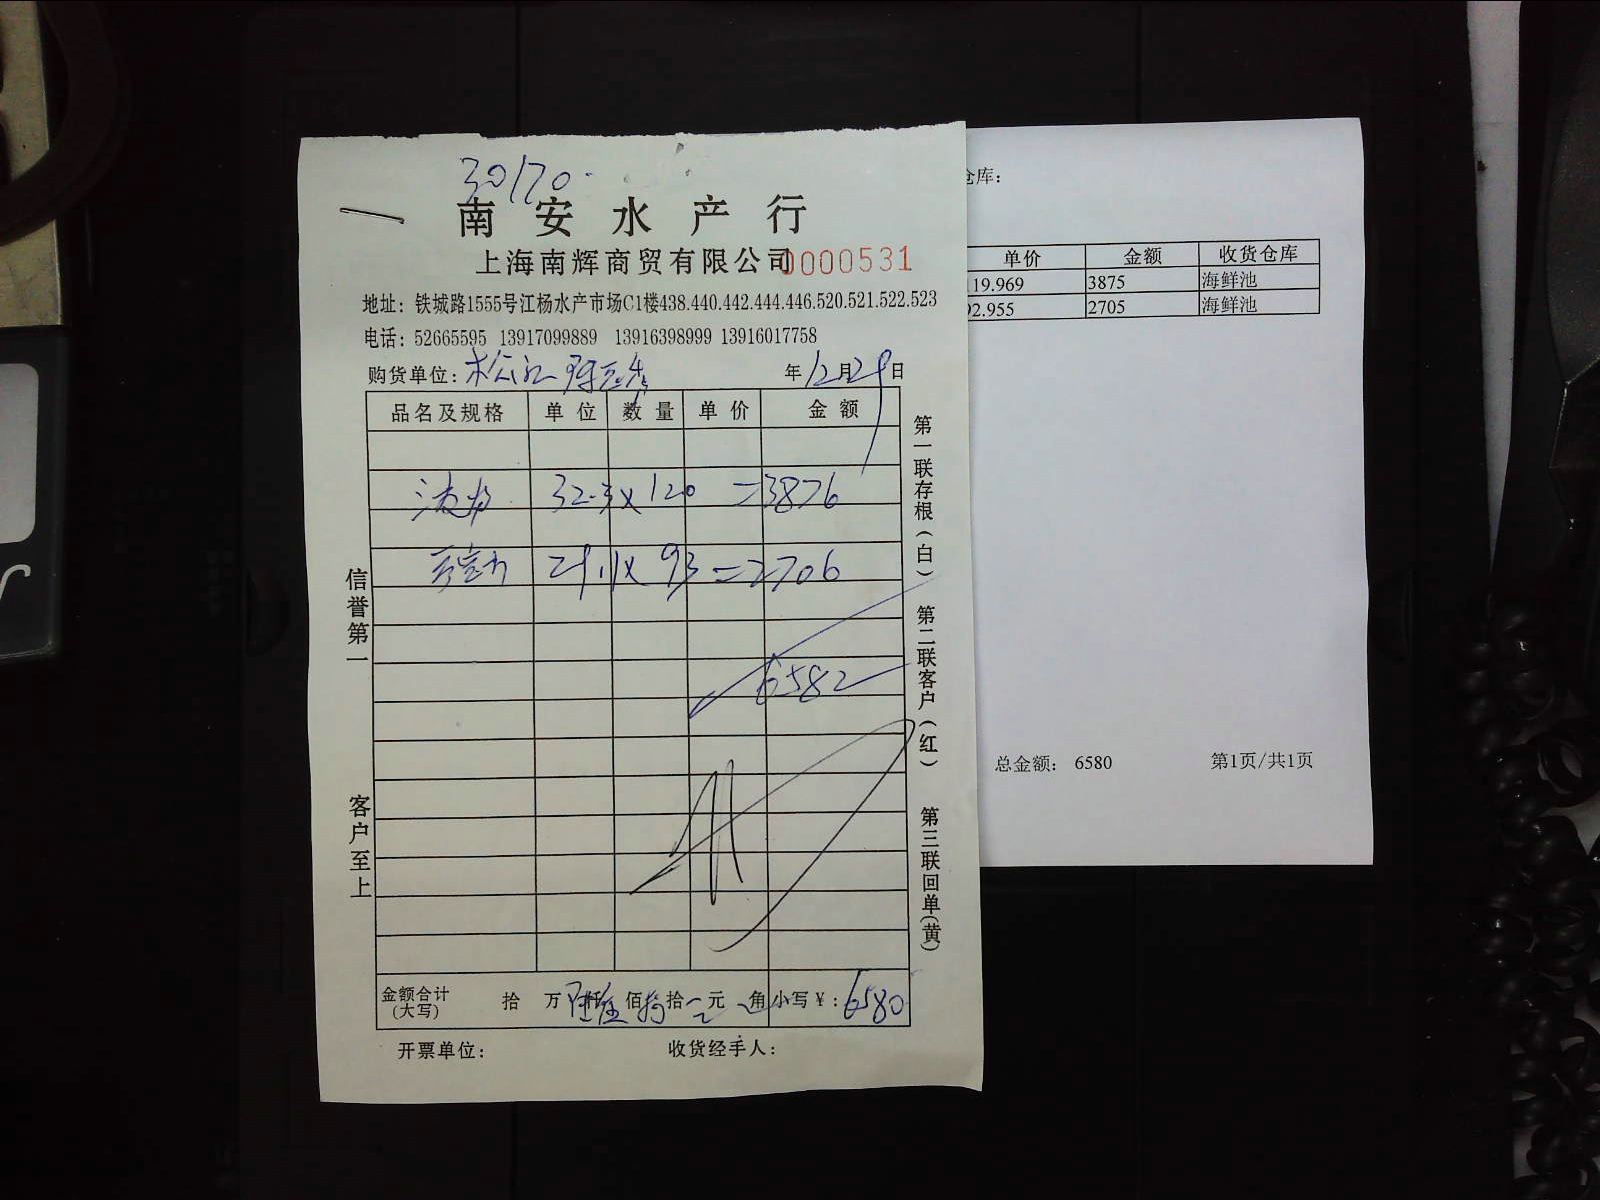 30170
南安水产行
上海南辉商贸有限公司 0000531
地址：铁城路1555号江杨水产市场C1楼438.440.442.444.446.520.521.522.523
电话：52665595 13917099889 13916398999 13916017758
购货单位： 年12月29日
品名及规格 单位 数量 单价 金额
32.3x 120 =3876
29.1x 93 =2706
6582
金额合计(大写) 拾 万 仟 佰 拾 元 角 小写￥：6580
开票单位： 收货经手人：
信誉第一
客户至上
第一联存根(白) 第二联客户(红) 第三联回单(黄)
仓库：
单价 金额 收货仓库
119.969 3875 海鲜池
92.955 2705 海鲜池
总金额： 6580 第1页/共1页